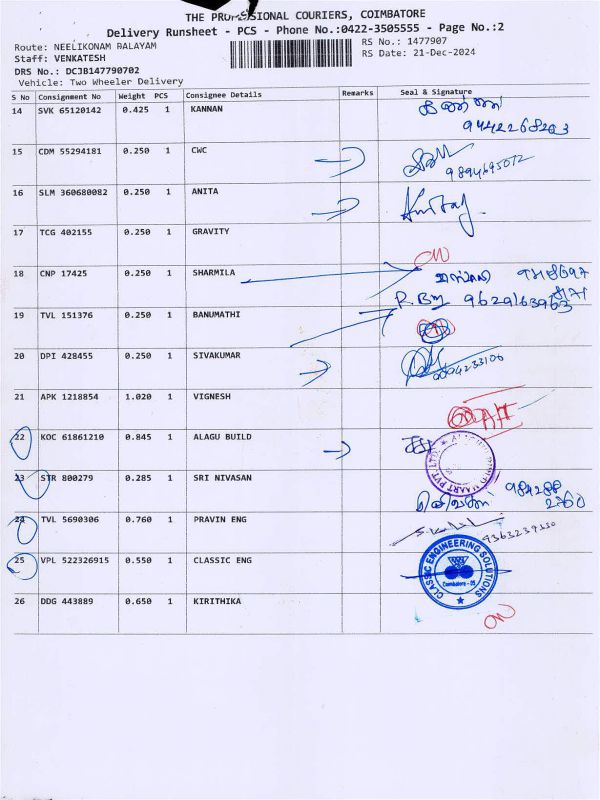 THE PROFESSIONAL COURIERS, COIMBATORE
Delivery Runsheet - PCS - Phone No.:0422-3505555 - Page No.:2
Route: NEELIKONAM PALAYAM
RS No.: 1477907
Staff: VENKATESH
RS Date: 21-Dec-2024
DRS No.: DCJB147790702
Vehicle: Two Wheeler Delivery
S No Consignment No Weight PCS Consignee Details Remarks Seal & Signature
14 SVK 65120142 0.425 1 KANNAN
15 CDM 55294181 0.250 1 CWC
9894695072
16 SLM 360680082 0.250 1 ANITA
17 TCG 402155 0.250 1 GRAVITY
18 CNP 17425 0.250 1 SHARMILA
19 TVL 151376 0.250 1 BANUMATHI
20 DPI 428455 0.250 1 SIVAKUMAR
21 APK 1218854 1.020 1 VIGNESH
22 KOC 61861210 0.845 1 ALAGU BUILD
23 STR 800279 0.285 1 SRI NIVASAN
24 TVL 5690306 0.760 1 PRAVIN ENG
25 VPL 522326915 0.550 1 CLASSIC ENG
CLASSIC ENGINEERING SOLUTIONS
26 DDG 443889 0.650 1 KIRITHIKA